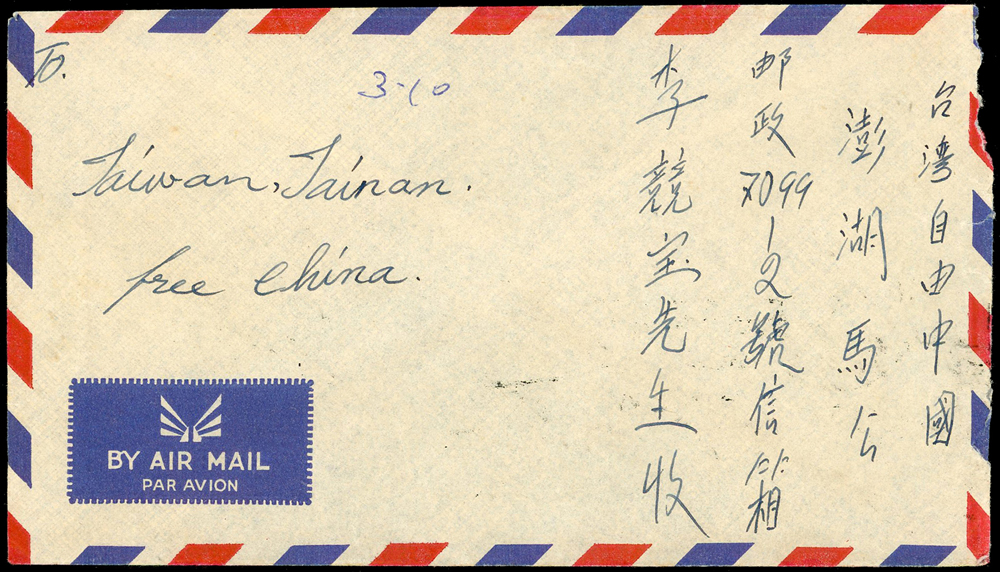 To.
3-10
Taiwan, Tainan.
free China.
BY AIR MAIL
PAR AVION
台湾自由中國
澎湖馬公
邮政7099-2號信箱
李競宝先生收